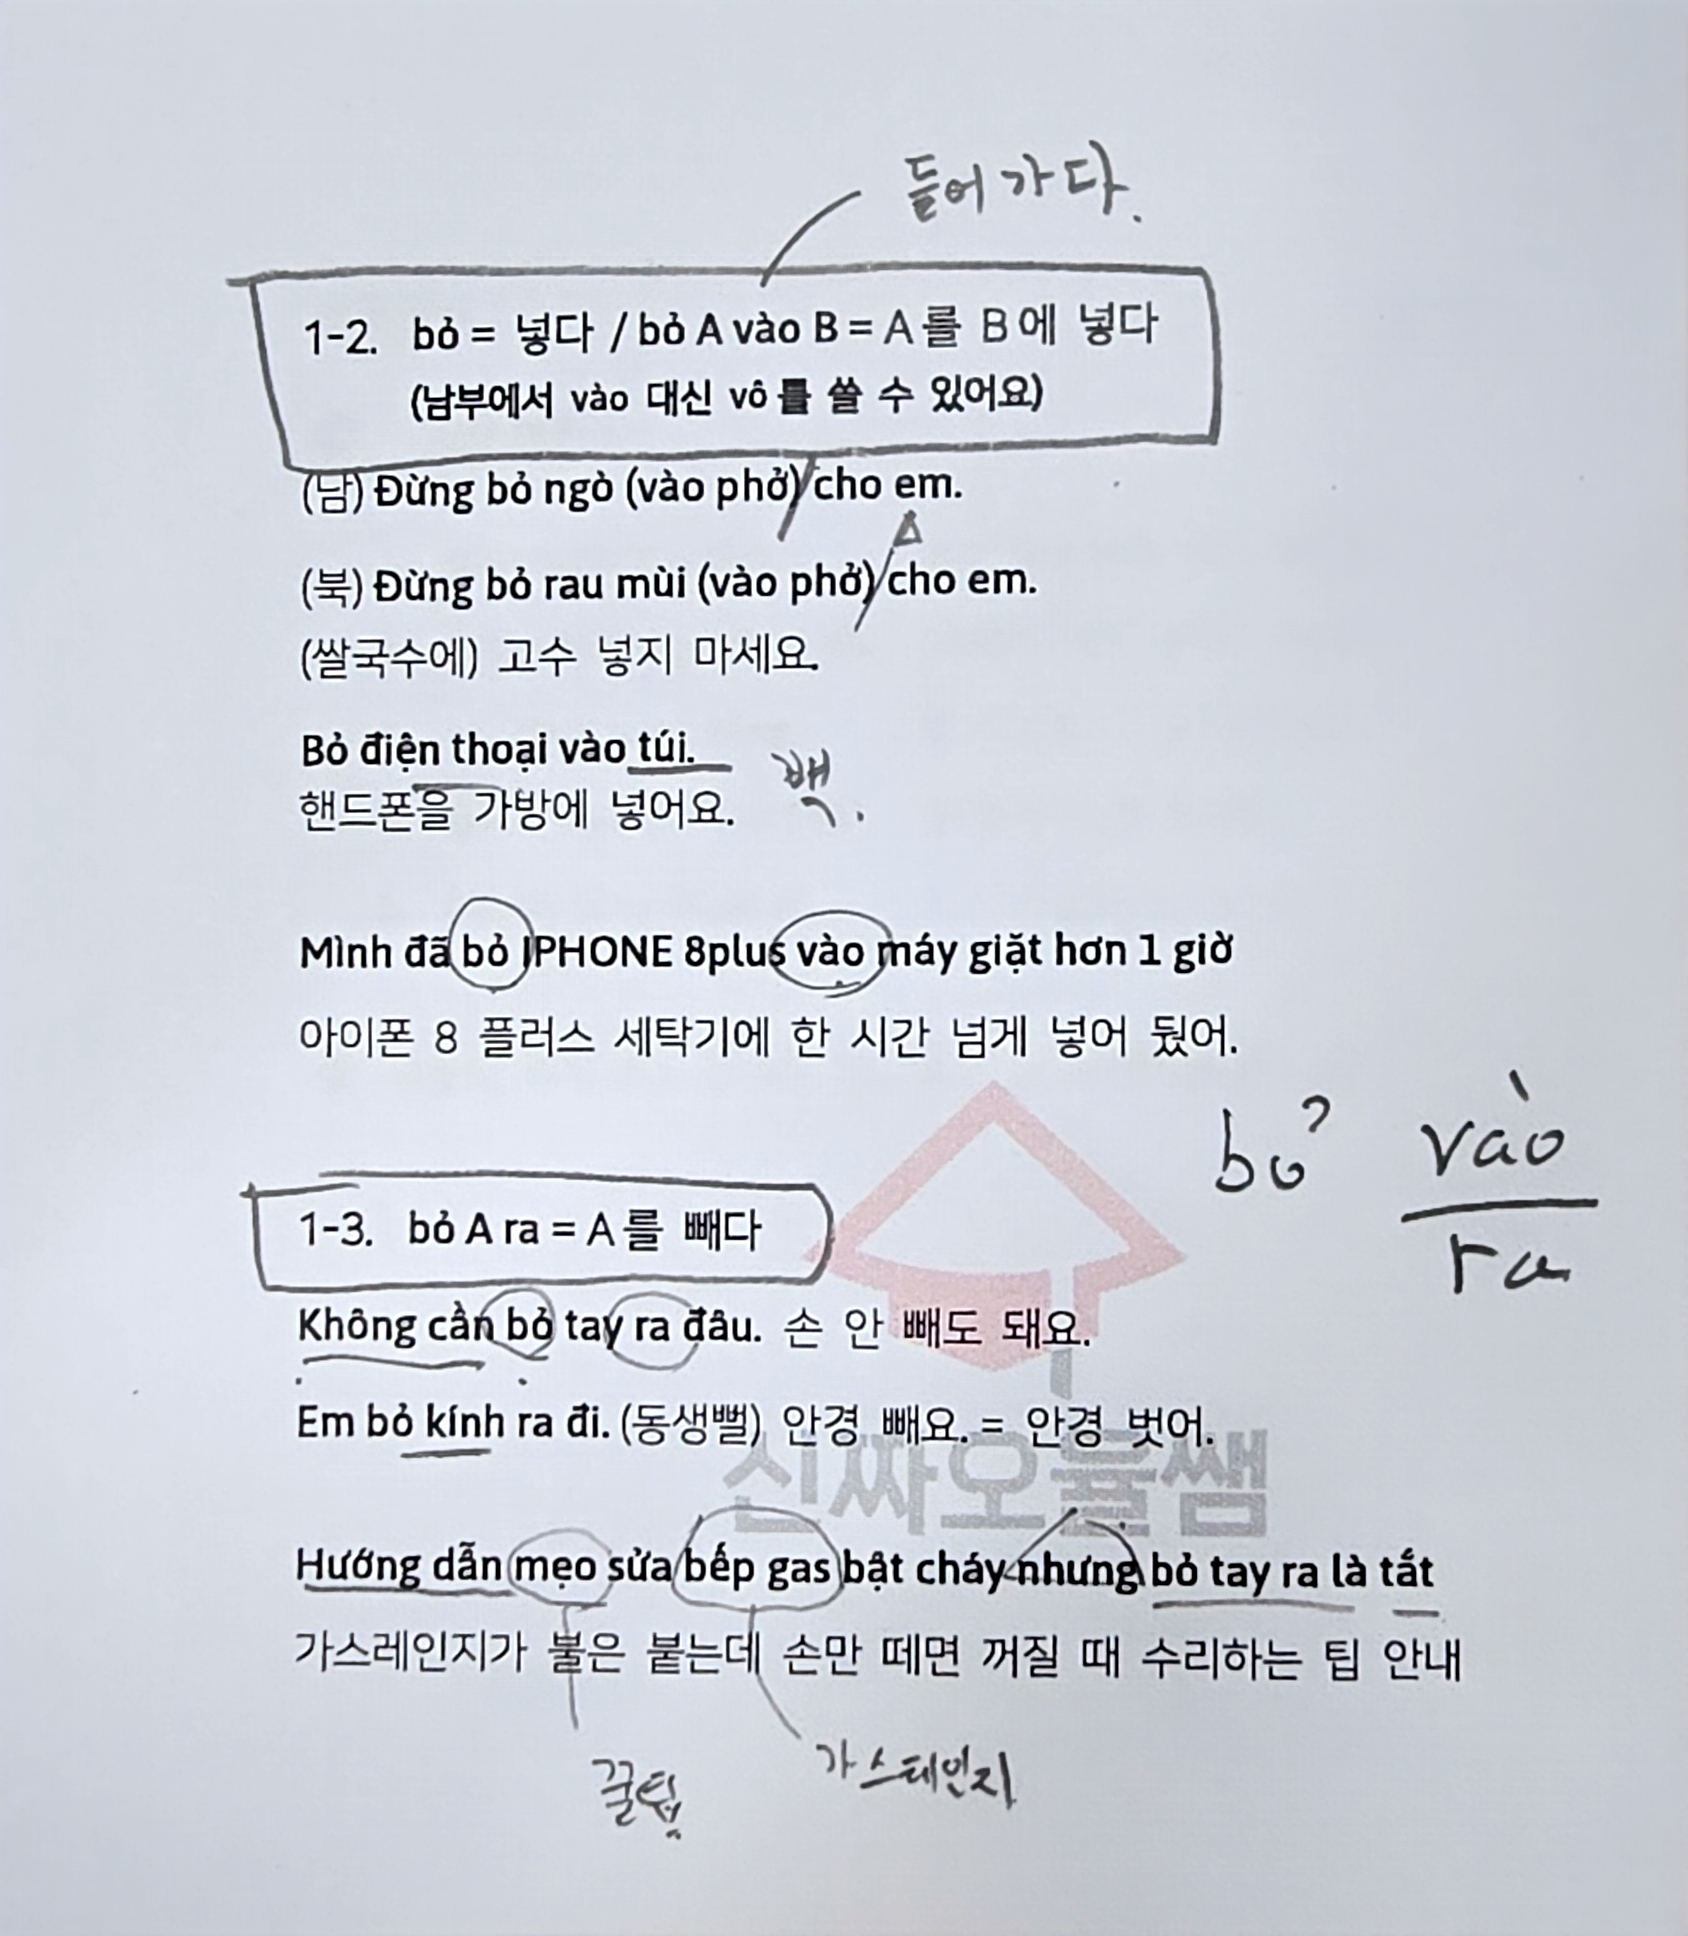 들어가다.
1-2. bỏ = 넣다 / bỏ A vào B = A를 B에 넣다
(남부에서 vào 대신 vô를 쓸 수 있어요)
(남) Đừng bỏ ngò (vào phở) cho em.
(북) Đừng bỏ rau mùi (vào phở) cho em.
(쌀국수에) 고수 넣지 마세요.
Bỏ điện thoại vào túi.
백.
핸드폰을 가방에 넣어요.
Mình đã bỏ IPHONE 8plus vào máy giặt hơn 1 giờ
아이폰 8 플러스 세탁기에 한 시간 넘게 넣어 뒀어.
bỏ vào
ra
1-3. bỏ A ra = A를 빼다
Không cần bỏ tay ra đâu. 손 안 빼도 돼요.
Em bỏ kính ra đi. (동생뻘) 안경 빼요. = 안경 벗어.
신짜오뮬쌤
Hướng dẫn mẹo sửa bếp gas bật cháy nhưng bỏ tay ra là tắt
가스레인지가 불은 붙는데 손만 떼면 꺼질 때 수리하는 팁 안내
꿀팁
가스레인지